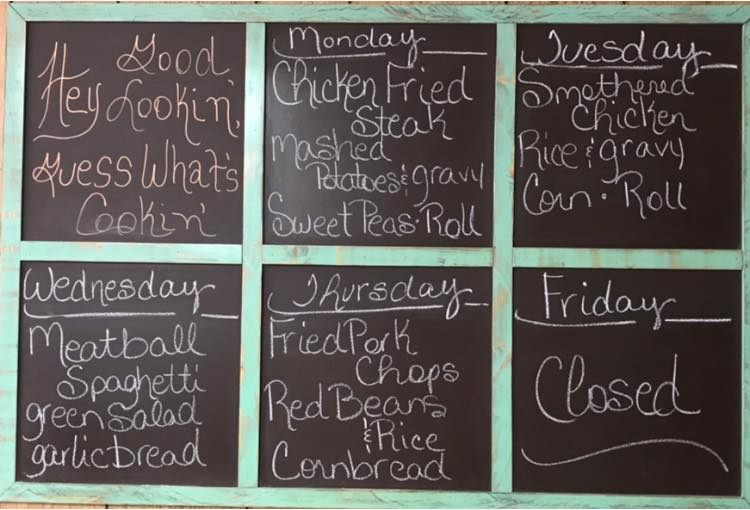 Hey Good
Lookin',
Guess What's
Cookin'
Monday
Chicken Fried
Steak
Mashed
Potatoes & gravy
Sweet Peas · Roll
Tuesday
Smothered
Chicken
Rice & gravy
Corn · Roll
Wednesday
Meatball
Spaghetti
green Salad
garlic bread
Thursday
Fried Pork
Chops
Red Beans
& Rice
Cornbread
Friday
Closed